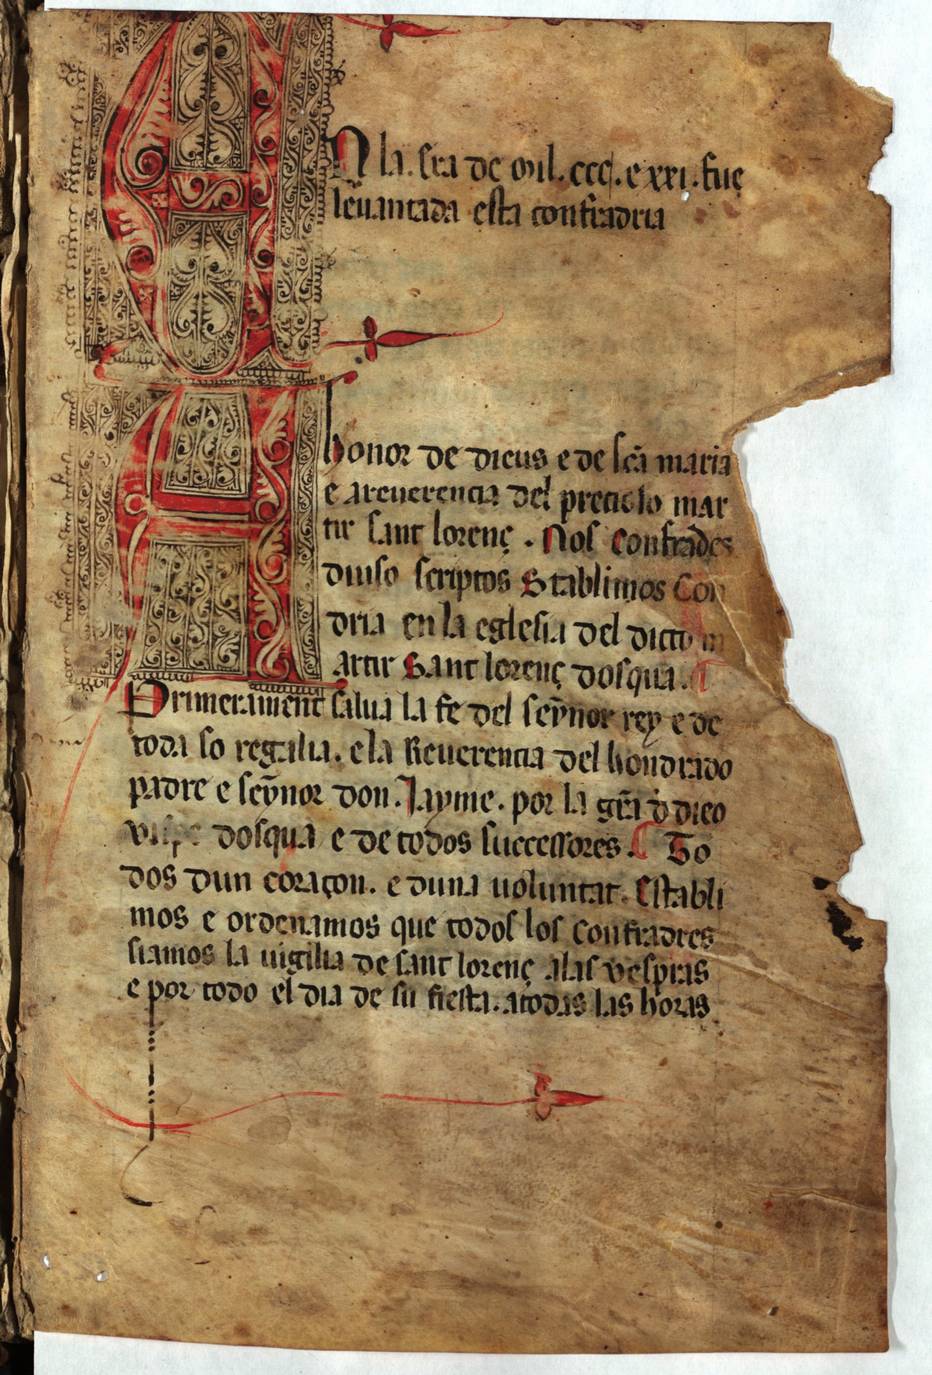 EN la era de mil. ccc. e xxi. fue
leuantada esta confradria
A honor de dieus e de scã maria
e a reuerencia del precioso mar
tir sant lorenç . Nos Confrades
diuso scriptos Stablimos Con
dria en la eglesia del dicto m
artir Sant lorenç dosqua.
Primerament salua la fe del seynor rey e de
toda so regalia. e la Reuerencia del hondrado
padre e seynor don. Jayme. por la grã d dieo
dosqua e de todos successores. To
dos dun coraçon. e duna uoluntat. Establi
mos e ordenamos que todos los Confradres
siamos la uigilia de sant lorenç alas vespras
e por todo el dia de su fiesta. atodas las horas